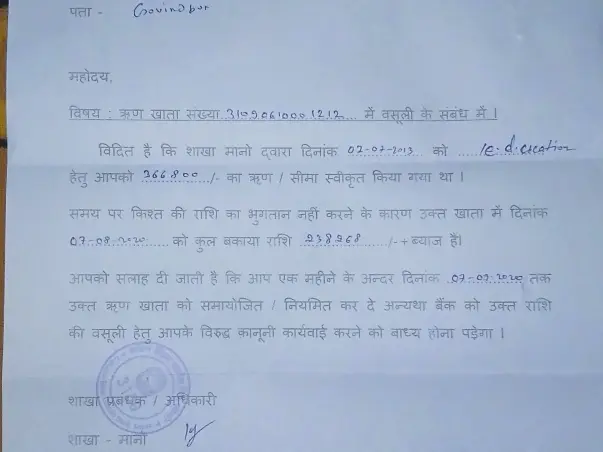 पता - Govindpur
महोदय,
विषय : ऋण खाता संख्या 31090610001212 में वसूली के संबंध में ।
विदित है कि शाखा मानो द्वारा दिनांक 02-07-2013 को
हेतु आपको 366800/- का ऋण / सीमा स्वीकृत किया गया था ।
समय पर किश्त की राशि का भुगतान नहीं करने के कारण उक्त खाता में दिनांक
07-08-2020 को कुल बकाया राशि 238968/-+ब्याज है।
आपको सलाह दी जाती है कि आप एक महीने के अन्दर दिनांक 07-09-2020 तक
उक्त ऋण खाता को समायोजित / नियमित कर दे अन्यथा बैंक को उक्त राशि
की वसूली हेतु आपके विरुद्ध क़ानूनी कार्यवाई करने को बाध्य होना पड़ेगा ।
शाखा प्रबंधक / अधिकारी
शाखा - मानो